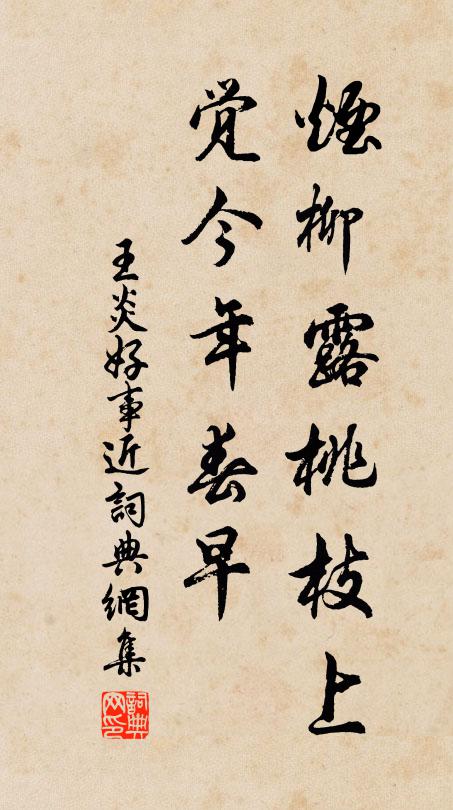 煙柳露桃枝上
覺今年春早
王炎好事近詞典網集
詞典
网印